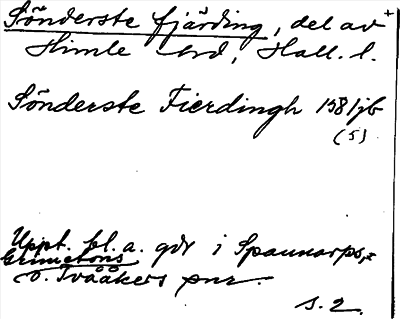 Sönderste fjärding, del av +
Himle hd, Hall. l.
Sönderste Fierdingh 1581 jb
(5)
Uppt. bl. a. gdr i Spannarps,
Grimetons
o. Tvååkers snr.
s. 2.